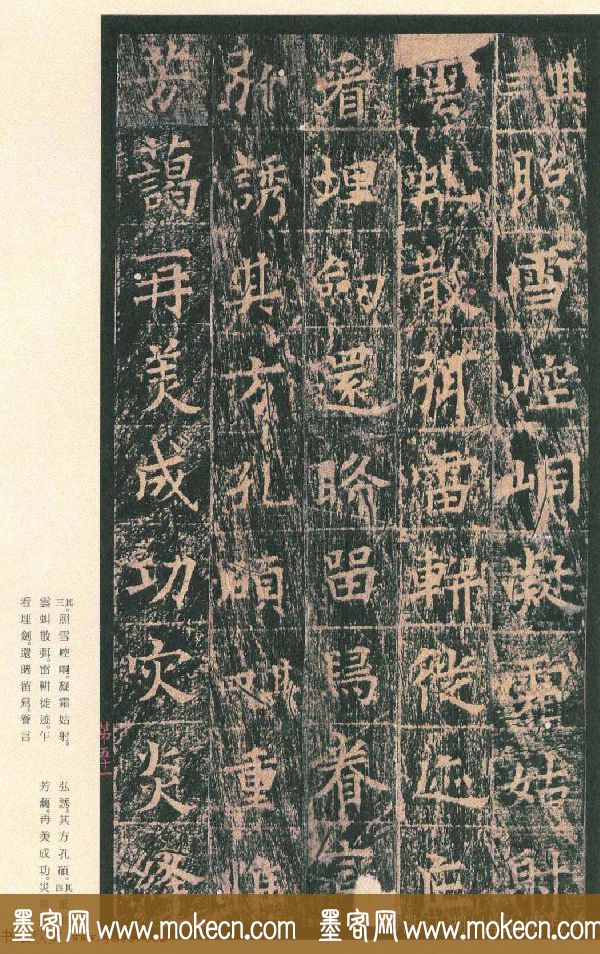 其三照雪崆峒凝霜姑射
雲虬散弭雷軿徙迹乍
看埋劍還睎留舄眷言
弘誘其方孔碩其四重惟
芳藹再美成功災炎
第五十一
其三。照雪崆峒。凝霜姑射。
雲虬散弭。雷軿徙迹。乍
看埋劍。還睎留舄。眷言
弘誘。其方孔碩。其四。重
芳藹。再美成功。災
墨客网 www.mokecn.com 墨客网 www.mokecn.com